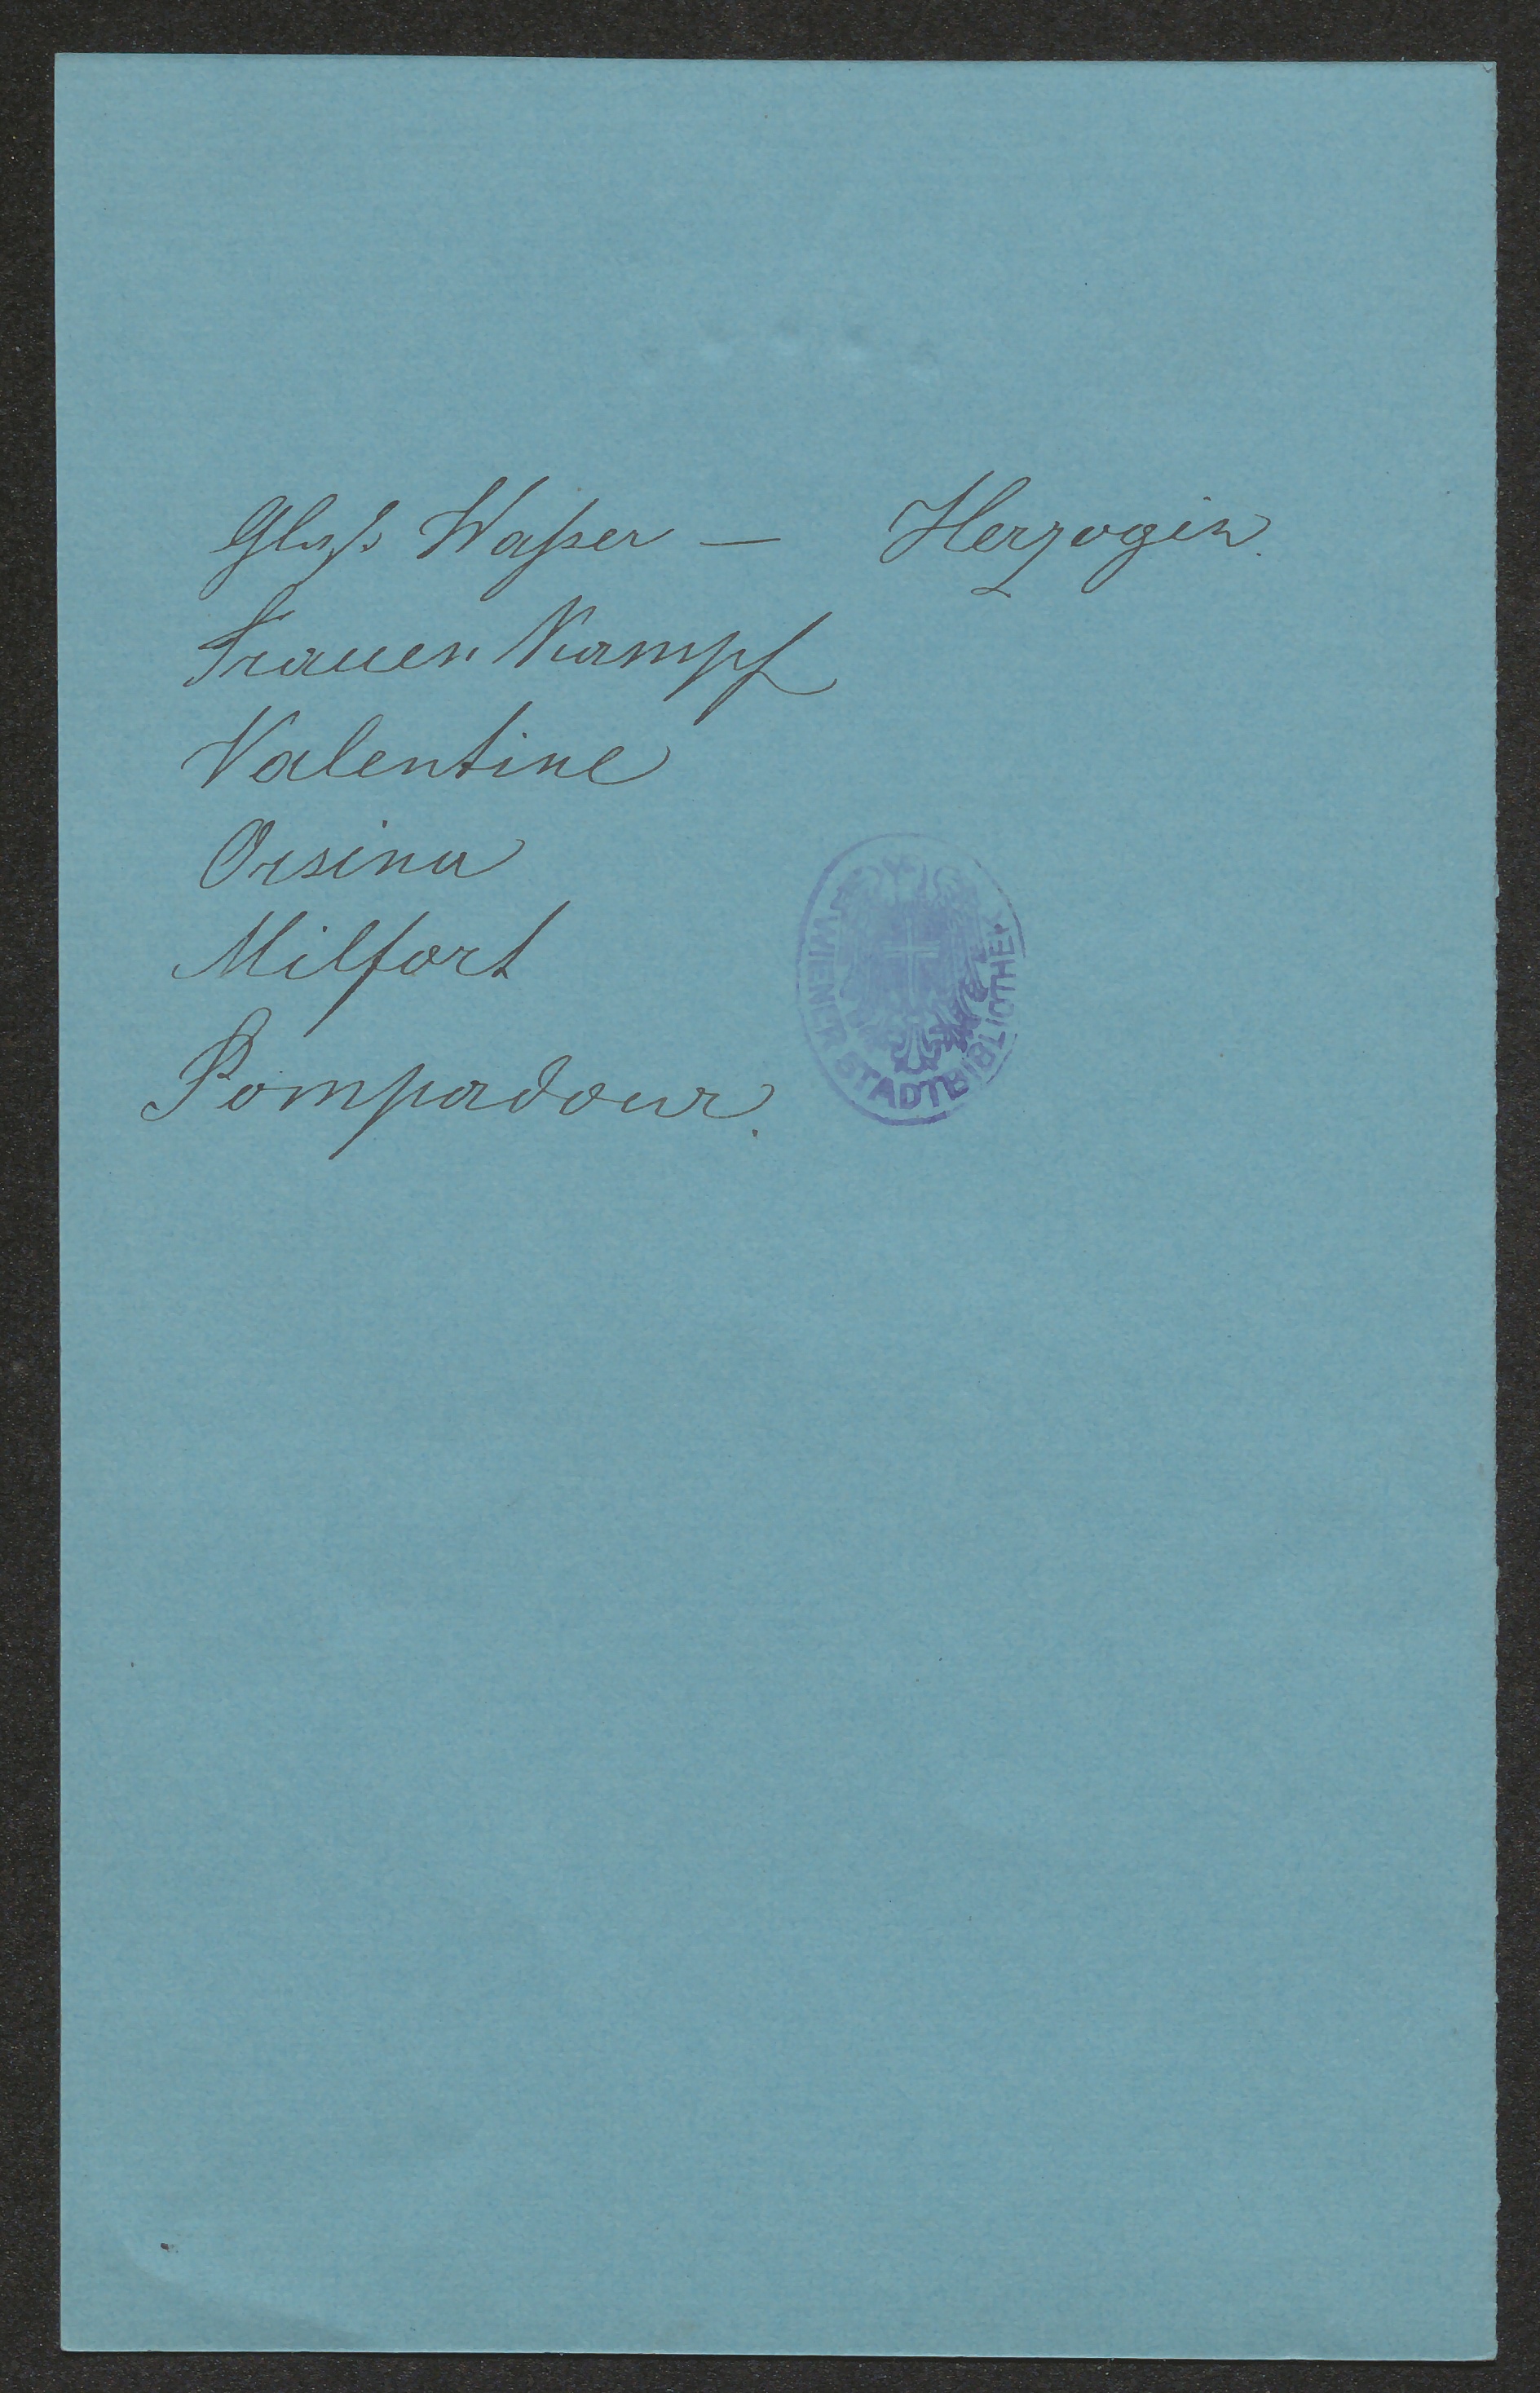 Glaß Waßer — Herzogin.
Frauen Kampf
Valentine
Orsina
Milfort
Pompadour.
WIENER STADTBIBLIOTHEK